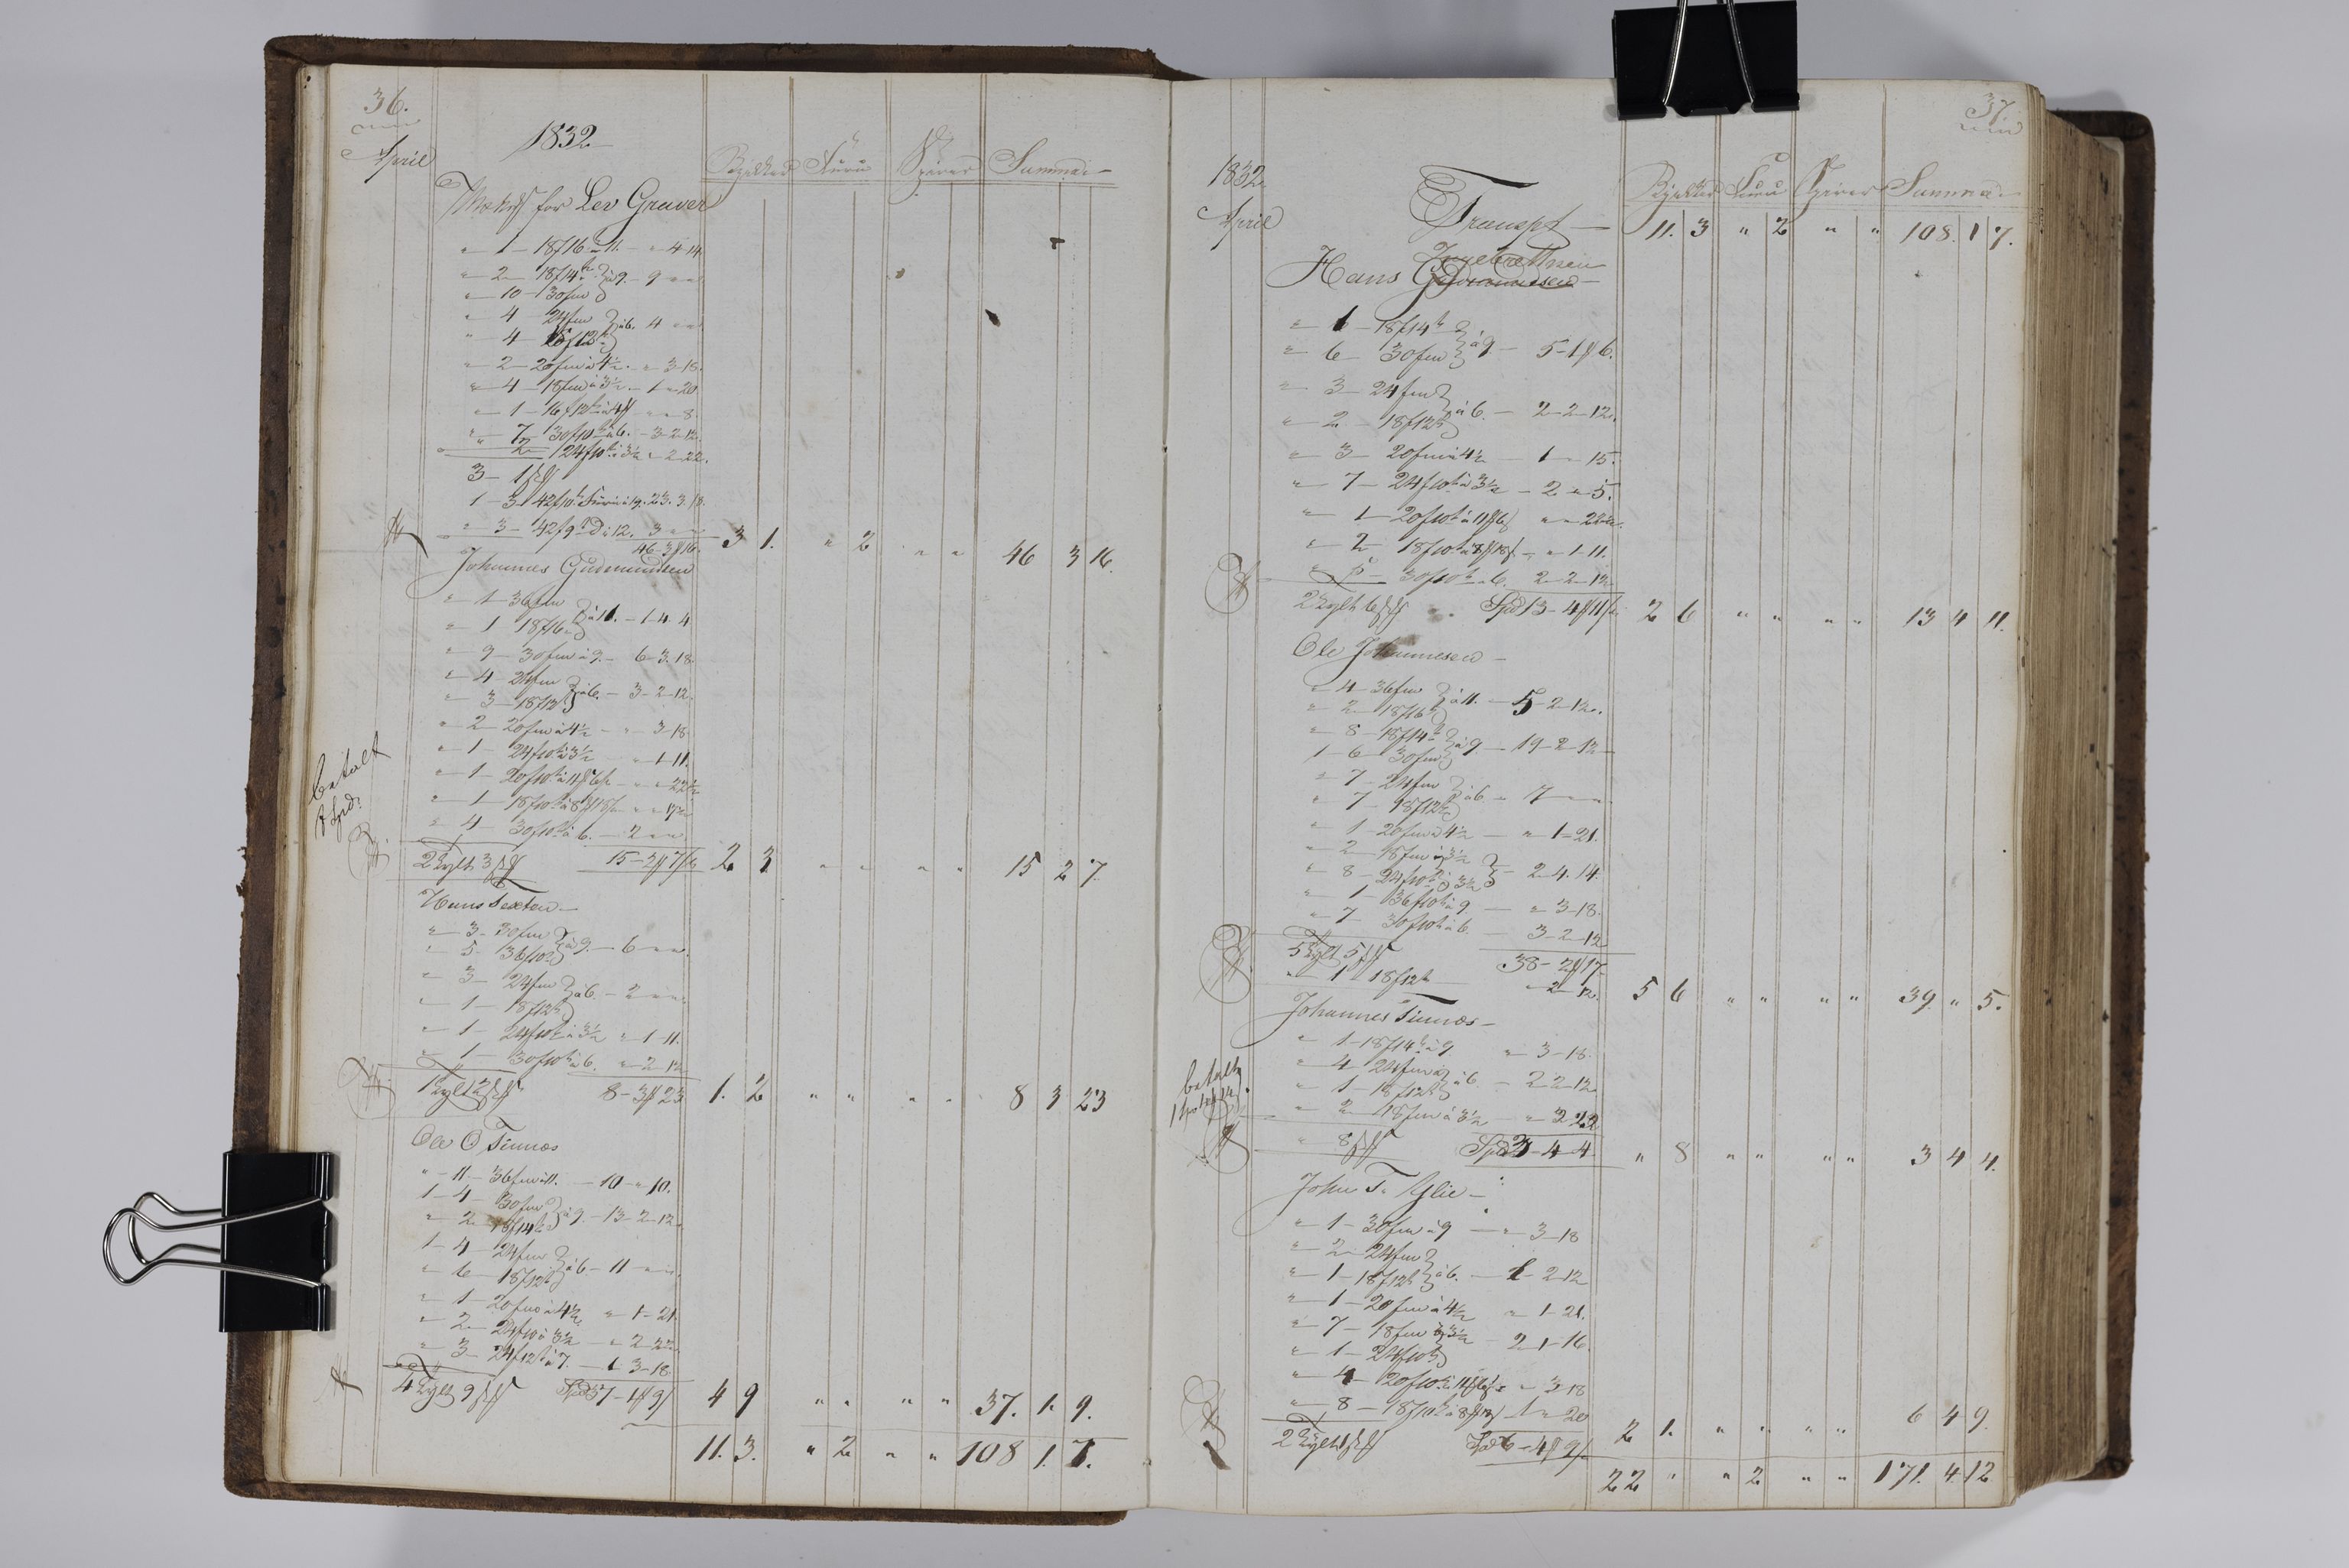 36.
April
1832
Bjelker Furu Spirer Summa
for Lev Graver
" 1 - 18f16 à 11. - " 4 14
" 2 - 18f14 à 9. - 9 " "
" 10 - 30fm
" 4 24fm à 6. 4 " "
" 4 - 18f12
" 2 - 20fm à 4½ - " 3-18.
" 4 - 18fm à 3½ - 1 " 20
" 1 - 16f12 à " " 8.
" 7 - 30f10 à 6. - 3-2-12.
2 24f10 à 3½ " 2-22.
3 - 1
1 - 3 42f10 Furu à 19. 23. 3. 18.
" 3 - 42f9 D à 12. 3 " "
46-3 16.
3 1. " 2 " " 46 3 16.
Johannes Gudmundsen
" 1 - 36fm à 11. - 1-4. 4
" 1 18f16
" 9 - 30fm à 9. - 6-3. 18.
" 4 - 24fm à 6. - 3-2-12.
" 3 - 18f12
" 2 - 20fm à 4½ - " 3-18.
" 1 - 24f10 à 3½ " 1-11.
" 1 - 20f10 à " " 22½
" 1 - 18f10 à
" 4 - 30f10 à 6. - 2 " "
betalt
2 Tylt 3 15-2 7
2 3 " " " " 15 2 7.
Hans Sexton
" 3 - 30fm à 9. - 6 " "
" 5 - 36f10
" 3 - 24fm à 6. - 2 " "
" 1 - 18f12
" 1 - 24f10 à 3½ " 1-11.
" 1 - 30f10 à 6. " 2-12
1 Tylt 2 8-3 23
1. 2 " " " " 8 3 23
Ole O Tinnæs
" 11 - 36fm à 11. - 10 " 10.
1 - 4 - 30fm à 9. - 13-2-12.
" 2 - 18f14
1 - 4 - 24fm à 6 - 11 " "
" 6 - 18f12
" 1 - 20fm à 4½ " 1-21.
" 2 - 24f10 à 3½ - " 2-22
" 3 - 24f12 à 7. - 1 3-18.
4 Tylt 9 Spd 37-1 9
4 9 " " " " 37. 1. 9.
11. 3. " 2 " " 108 1. 7.
37.
1832.
April
Bjelker Furu Spirer Summa
Transpt - 11. 3 " 2 " " 108. 1 7.
Ingebrettsen
Hans
" 1 - 18f14 à 9 - 5-1 6.
" 6 - 30fm
" 3 - 24fm à 6. - 2-2-12.
" 2 - 18f12
" 3 - 20fm à 4½ - 1 - 15.
" 7 - 24f10 à 3½ - 2 " 5.
" 1 - 20f10 à
" 2 - 18f10 à - " 1-11.
" 5 - 30f10 à 6. 2-2-12
2 Tylt 6 Spd 13-4 11
2 6 " " " " 13 4 11.
Ole Johannesen
" 4 - 36fm à 11. - 5-2-12.
" 2 - 18f16
" 8 - 18f14 à 9. - 19-2-12
1 - 6 - 30fm
" 7 - 24fm à 6 - 7 " "
" 7 - 18f12
" 1 - 20fm à 4½ - " 1-21.
" 2 - 18fm à 3½ - 2-4. 14.
" 8 - 24f10 à 3½
" 1 - 36f10 à 9 - " 3-18.
" 7 - 30f10 à 6. - 3-2-12
5 Tylt 5 38-2 17.
" 1 18f12 - " 2 12.
5 6 " " " " 39. " 5.
Johannes Tinnæs
" 1 - 18f14 à 9 " 3-18.
" 4 - 24fm à 6 - 2-2-12
" 1 - 18f12
" 2 - 18fm à 3½ - " 2 22
betalt
" 8 Spd 3-4-4.
" 8 " " " " 3 4 4.
John T.
" 1 - 30fm à 9 - " 3-18
" 2 - 24fm à 6. - 1-2-12
" 1 - 18f12
" 1 - 20fm à 4½ " 1-21.
" 7 - 18fm à 3½ - 2 1-16.
" 1 - 24f10
" 4 - 20f10 à " 3-18
" 8 - 18f10 à 1 " 20
2 Tylt 1 Spd 6-4 9
2 1. " " " " 6 4 9.
22 " " 2 " " 171. 4. 12